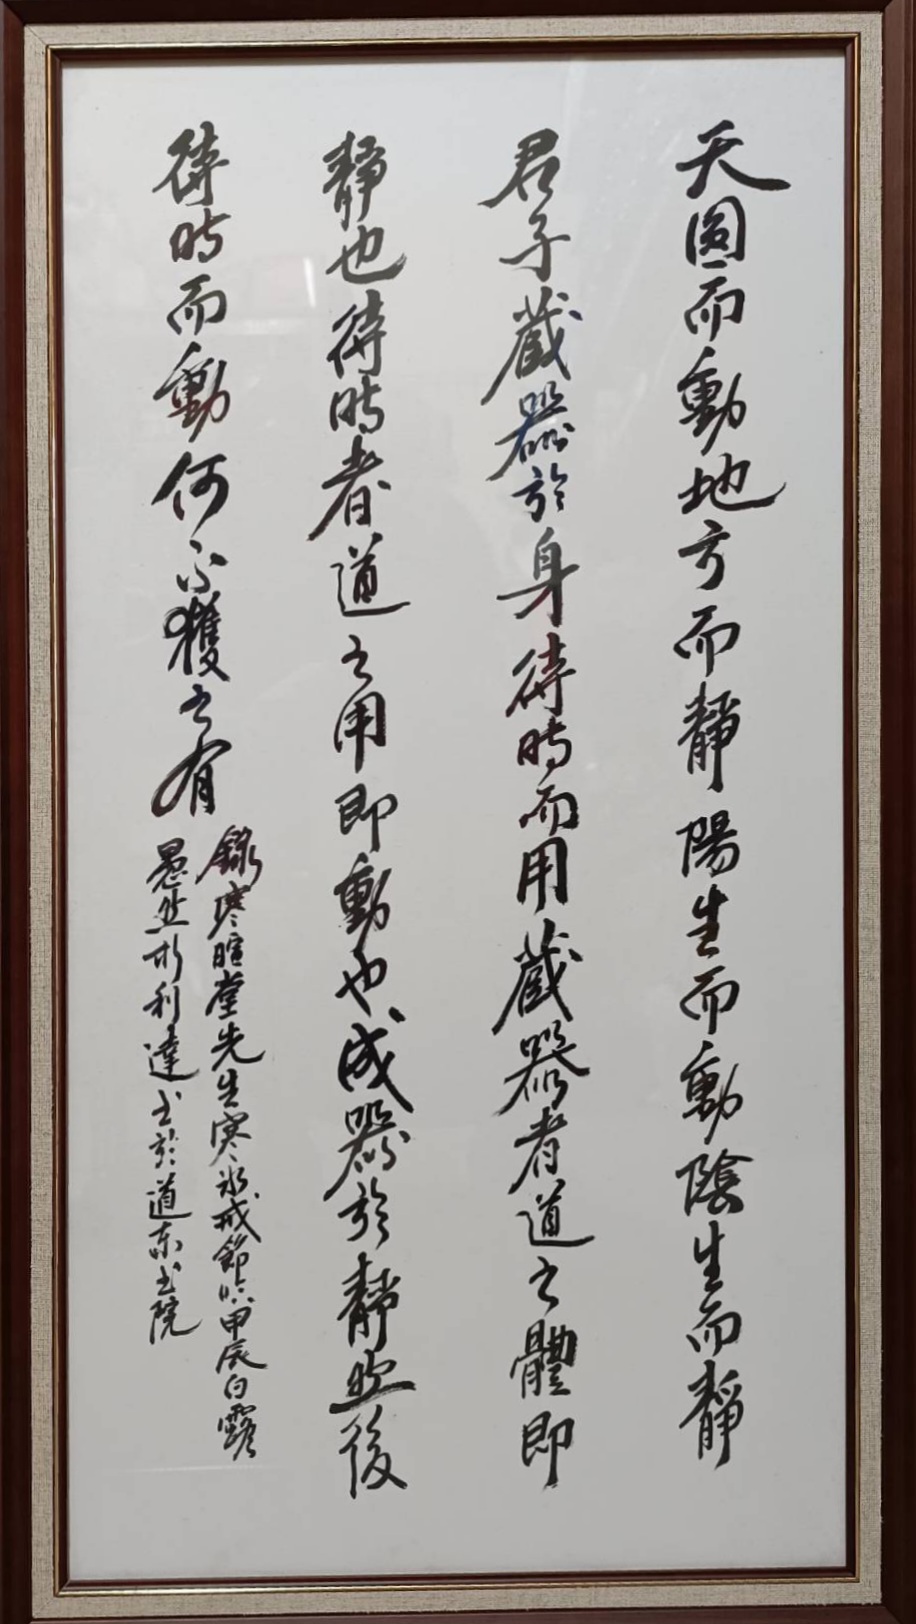 天圓而動地方而靜陽生而動陰生而靜
君子藏器於身待時而用藏器者道之體即
靜也待時者道之用即動也成器於靜然後
待時而動何不獲之有
錄寒暄堂先生寒冰戒節吟甲辰白露
愚然彬利達书於道东书院